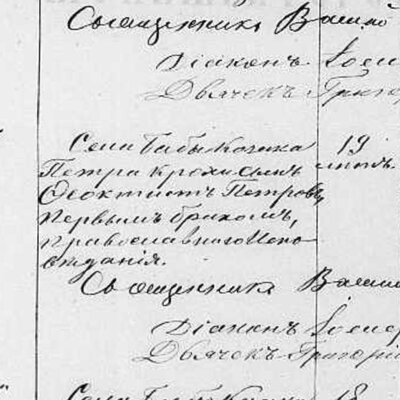 Священникъ Васили
Діаконъ Іоси
Дьячекъ Григор
Села Бабы Козака 19
Петра Крохи сынъ лѣтъ
Ѳеоктистъ Петровъ,
первымъ бракомъ,
православнаго Испо
вѣданія.
Священникъ Васи
Діаконъ Іосиф
Дьячекъ Григорій
Села Бабы Козака 18